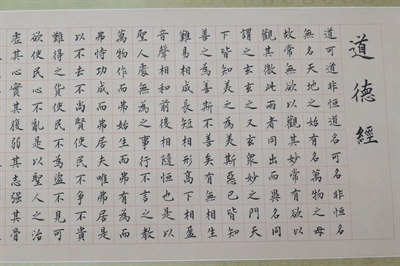 道德經
道可道非恒道名可名非恒名
無名天地之始有名萬物之母
故常無欲以觀其妙常有欲以
觀其徼此兩者同出而異名同
謂之玄玄之又玄衆妙之門天
下皆知美之為美斯惡已皆知
善之為善斯不善矣有無相生
難易相成長短相形高下相盈
音聲相和前後相隨恒也是以
聖人處無為之事行不言之教
萬物作而弗始生而弗有為而
弗恃功成而弗居夫唯弗居是
以不去不尚賢使民不爭不貴
難得之貨使民不為盜不見可
欲使民心不亂是以聖人之治
虛其心實其腹弱其志強其骨